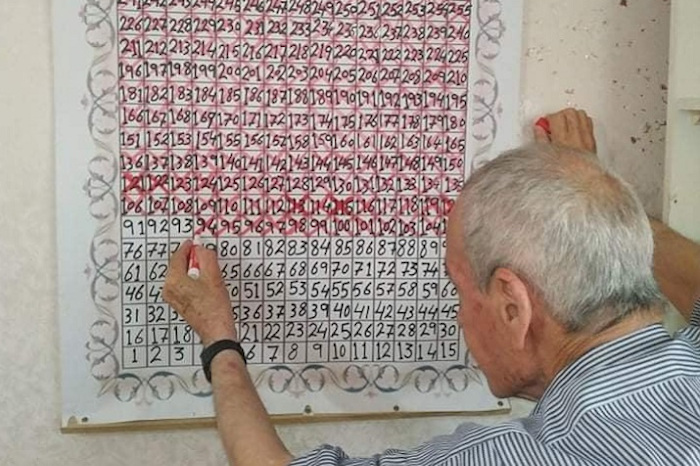 241 242 243 244 245 246 247 248 249 250 251 252 253 254 255
226 227 228 229 230 231 232 233 234 235 236 237 238 239 240
211 212 213 214 215 216 217 218 219 220 221 222 223 224 225
196 197 198 199 200 201 202 203 204 205 206 207 208 209 210
181 182 183 184 185 186 187 188 189 190 191 192 193 194 195
166 167 168 169 170 171 172 173 174 175 176 177 178 179 180
151 152 153 154 155 156 157 158 159 160 161 162 163 164 165
136 137 138 139 140 141 142 143 144 145 146 147 148 149 150
121 122 123 124 125 126 127 128 129 130 131 132 133 134 135
106 107 108 109 110 111 112 113 114 115 116 117 118 119 120
91 92 93 94 95 96 97 98 99 100 101 102 103 104
76 77 80 81 82 83 84 85 86 87 88 89
61 62 65 66 67 68 69 70 71 72 73 74
46 50 51 52 53 54 55 56 57 58 59 60
31 32 36 37 38 39 40 41 42 43 44 45
16 17 18 21 22 23 24 25 26 27 28 29 30
1 2 3 6 7 8 9 10 11 12 13 14 15